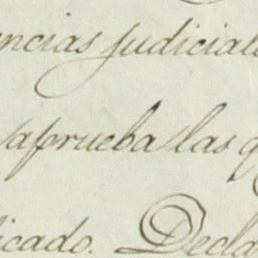 encias judicial
aprueba las q
icado. Decla